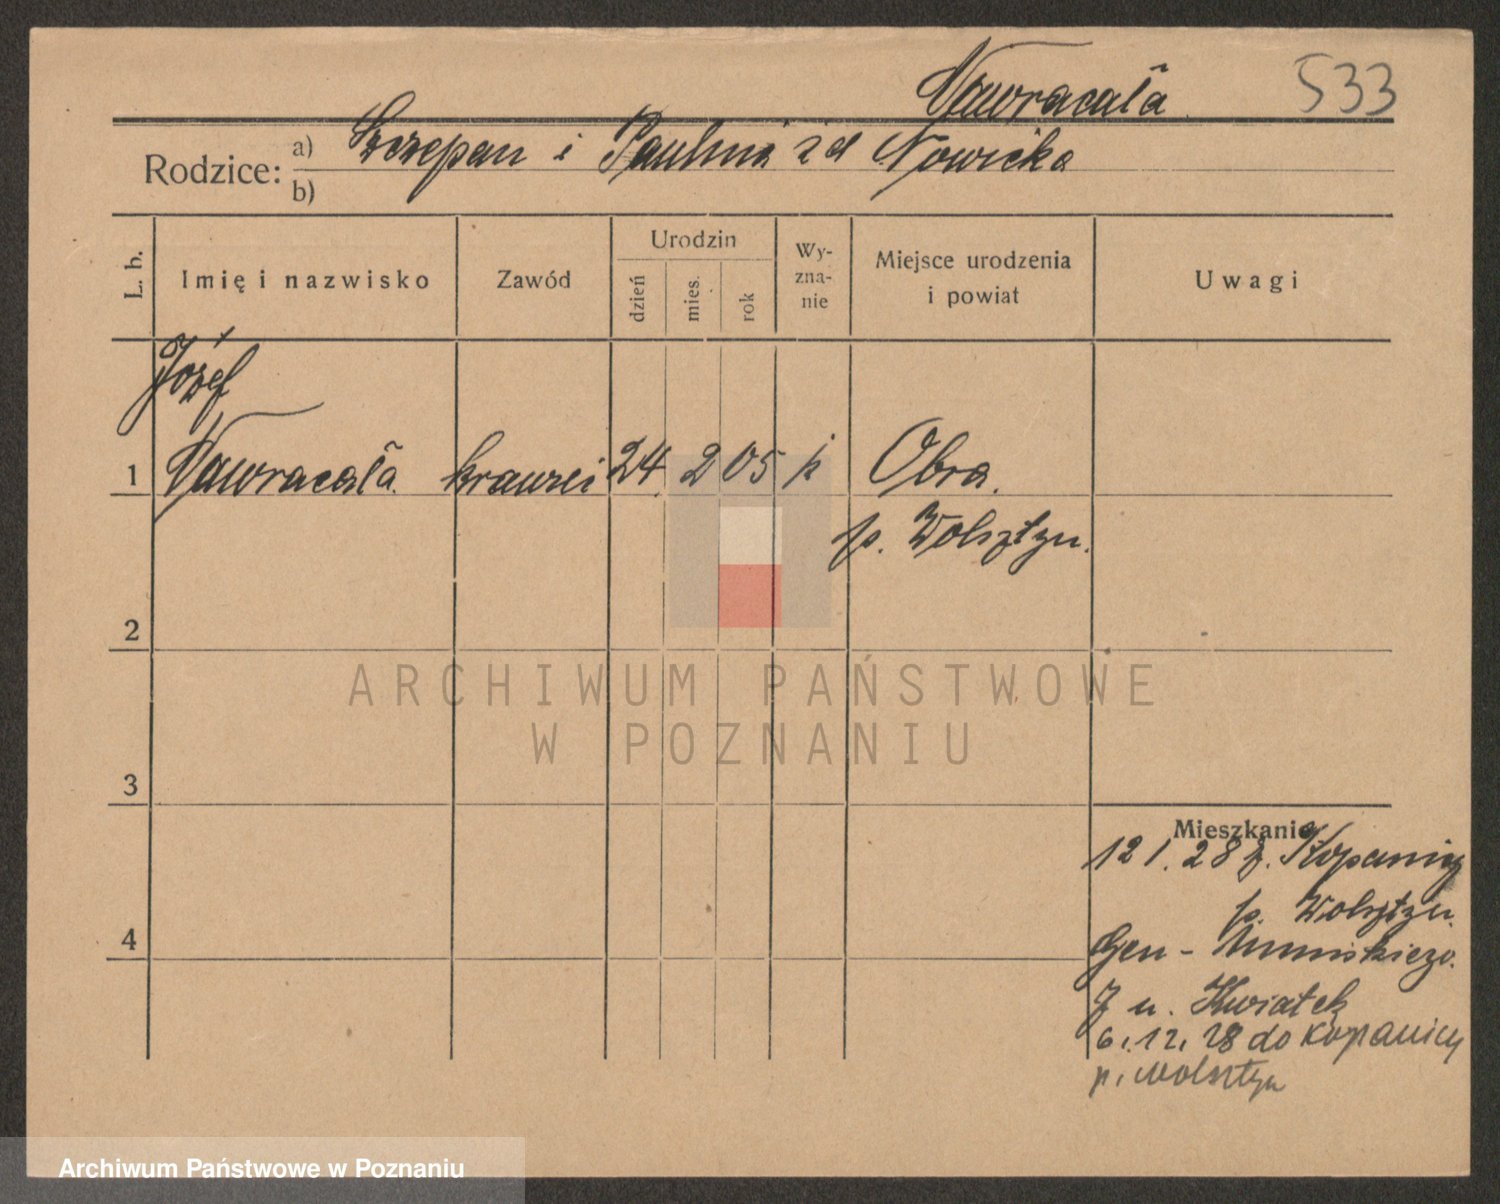 Nawracała
533
Rodzice: a) Szczepan i Paulina zd Nowicka
b)
L. b.
Imię i nazwisko
Zawód
Urodzin
dzień
mies.
rok
Wy-
zna-
nie
Miejsce urodzenia
i powiat
Uwagi
Józef
1 Nawracała krawiec 24. 2 05 k Obra.
p. Wolsztyn.
2
3
4
Mieszkanie
12 1. 28 z. Kopanicy
p. Wolsztyn.
Gen -
7 u. Kwiatek
6. 12. 28 do Kopanicy
p. Wolsztyn
ARCHIWUM PAŃSTWOWE
W POZNANIU
Archiwum Państwowe w Poznaniu